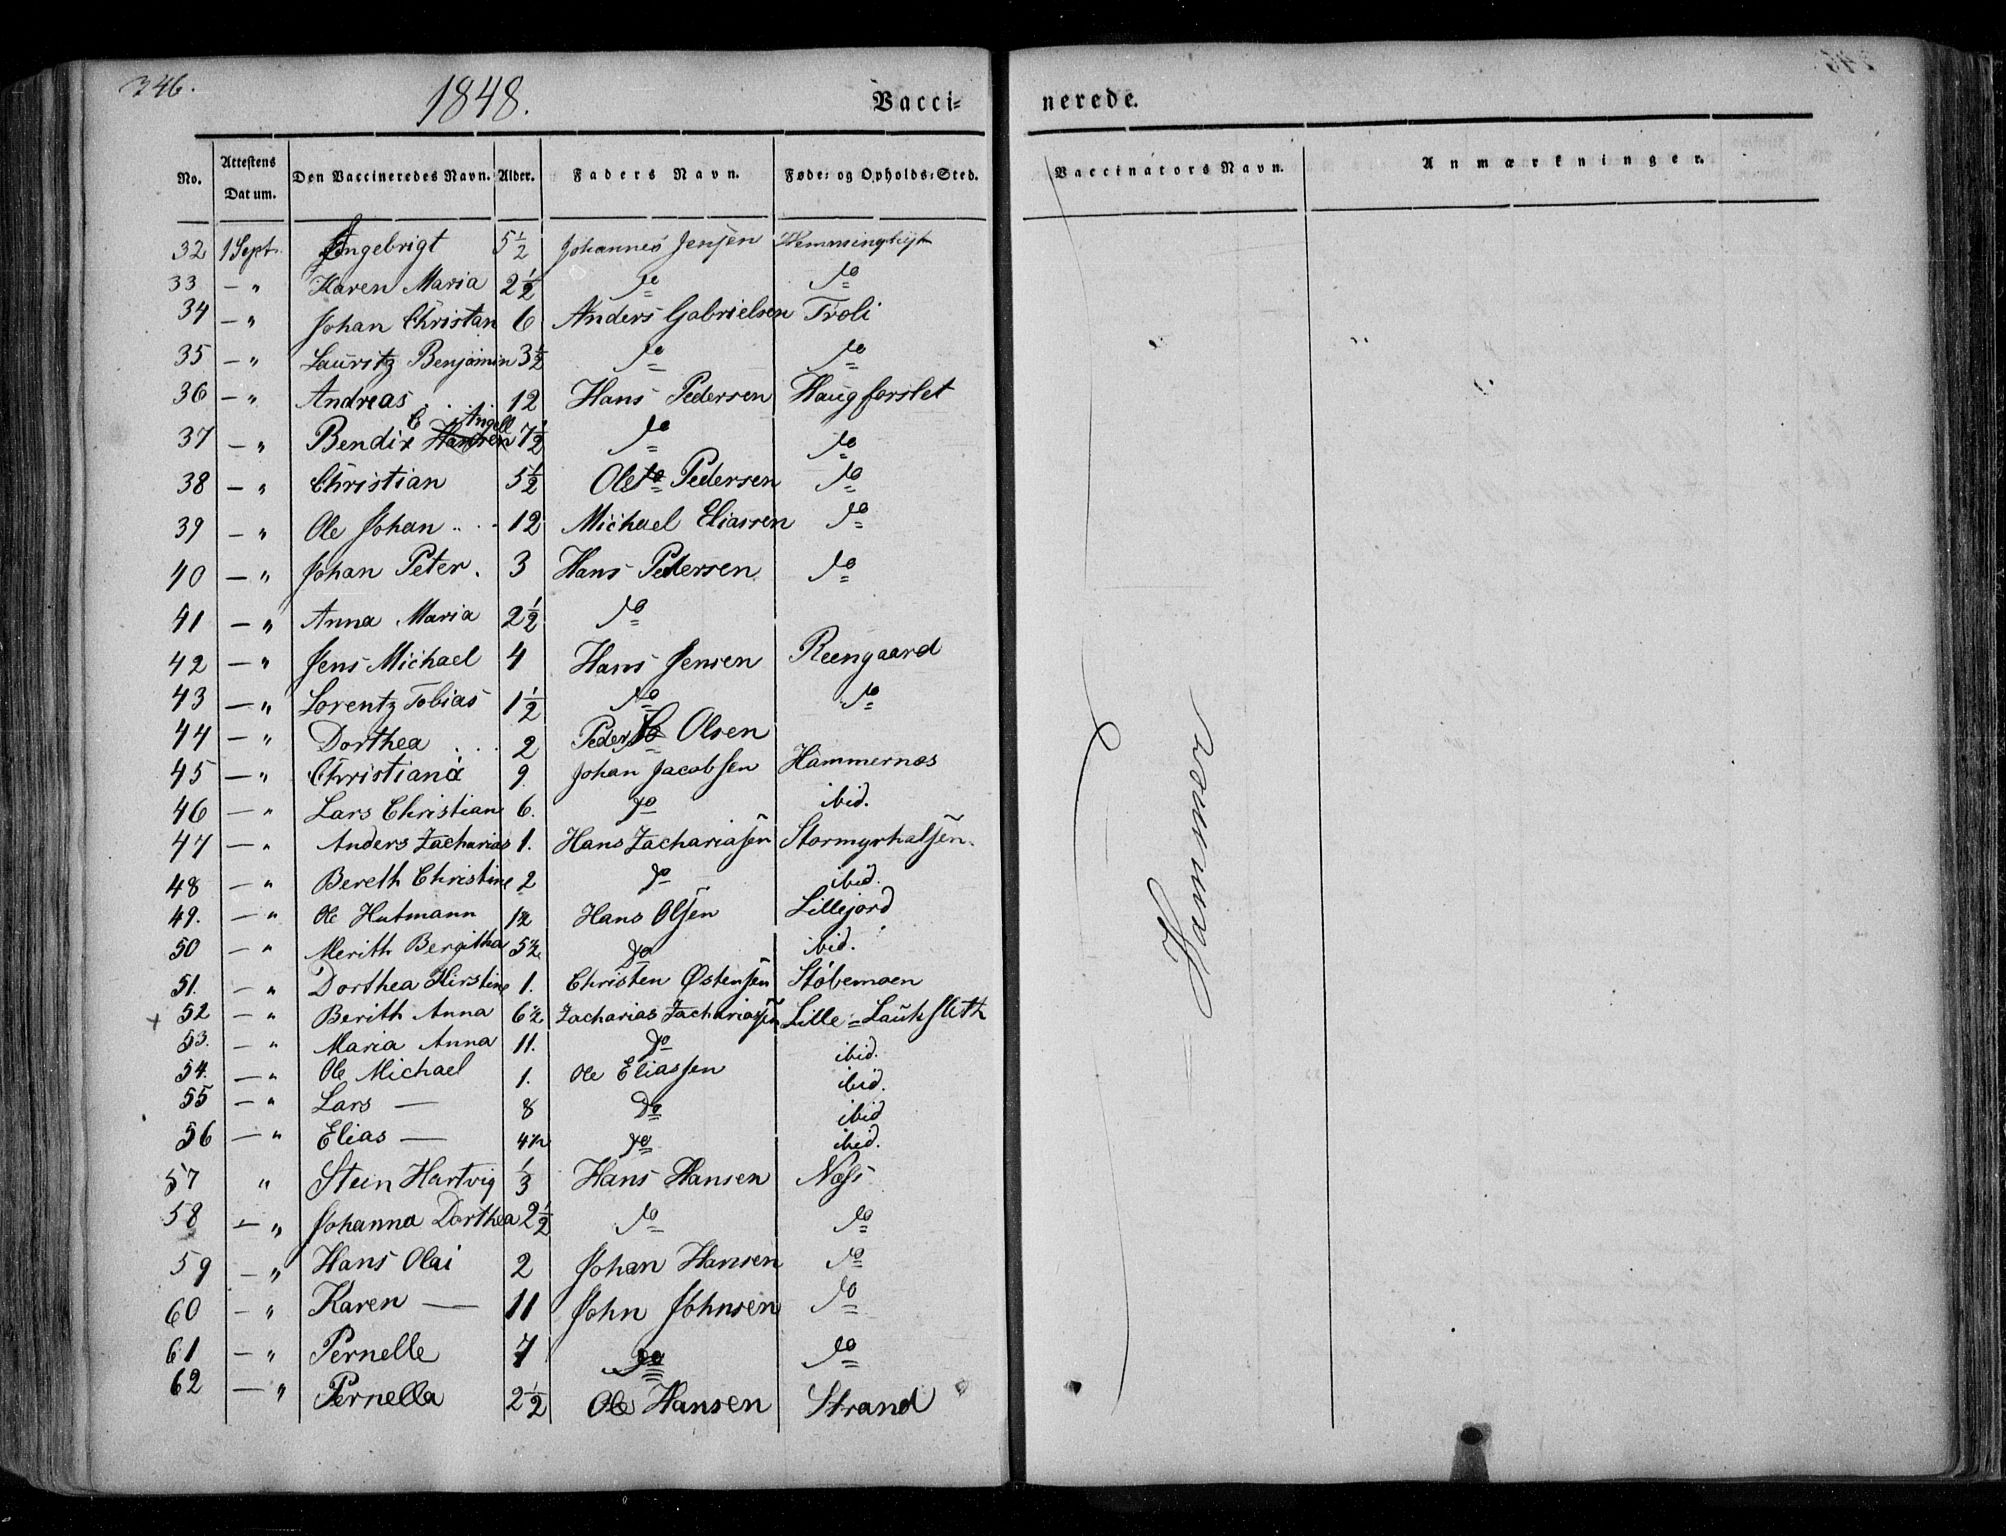 346. 1848. Vacci= nerede.
No. Attestens Datum. Den Vaccineredes Navn. Alder. Faders Navn. Føde= og Opholds=Sted. Vaccinators Navn. Anmærkninger.
32 1 Sept. Ingebrigt 5 1/2 Johannes Jensen
33 — " Karen Maria 2 1/2 do do
34 — " Johan Christan 6 Anders Gabrielsen Troli
35 — " Lauritz Benjamin 3 1/2 do do
36 — " Andreas . . . 12 Hans Pedersen Haugforslet
37 — " Bendix C Angell Hansen 7 1/2 do do
38 — " Christian 5 1/2 Ole Pedersen do
39 — " Ole Johan . . . 12 Michael Eliassen do
40 — " Johan Peter . 3 Hans Pedersen do
41 — " Anna Maria 2 1/2 do
42 — " Jens Michael 4 Hans Jensen Reengaard
43 — " Lorentz Tobias 1 1/2 do do
44 — " Dorthea . . . 2 Peder Olsen
45 — " Christiana 9 Johan Jacobsen Hammernæs
46 — " Lars Christian 6. do ibid.
47 — " Anders Zacharias 1. Hans Zachariasen Stormyrhalsen.
48 — " Bereth Christine 2 do ibid.
49. — " Ole Hutmann 1 1/2 Hans Olsen Lillejord
50 — " Merith Bergitha 5 1/2 do ibid.
51. — " Dorthea Kirstine 1. Christen Østensen Støbemoen
+ 52 — " Berith Anna 6 1/2 Zacharias Zachariassen Lille=Laukslett
53. — " Maria Anna 11. do ibid.
54. — " Ole Michael 1. Ole Eliassen ibid.
55 — " Lars — 8 do ibid
56 — " Elias — 4 1/2 do ibid.
57 " Stein Hartvig 1/3 Hans Hansen Næss
58 — " Johanna Dorthea 2 1/2 do do
59 — " Hans Olai 2 Johan Hansen do
60 — " Karen — 11 John Johnsen do
61 — " Pernelle 7 do do
62 — " Pernella 2 1/2 Ole Hansen Strand
Hammer